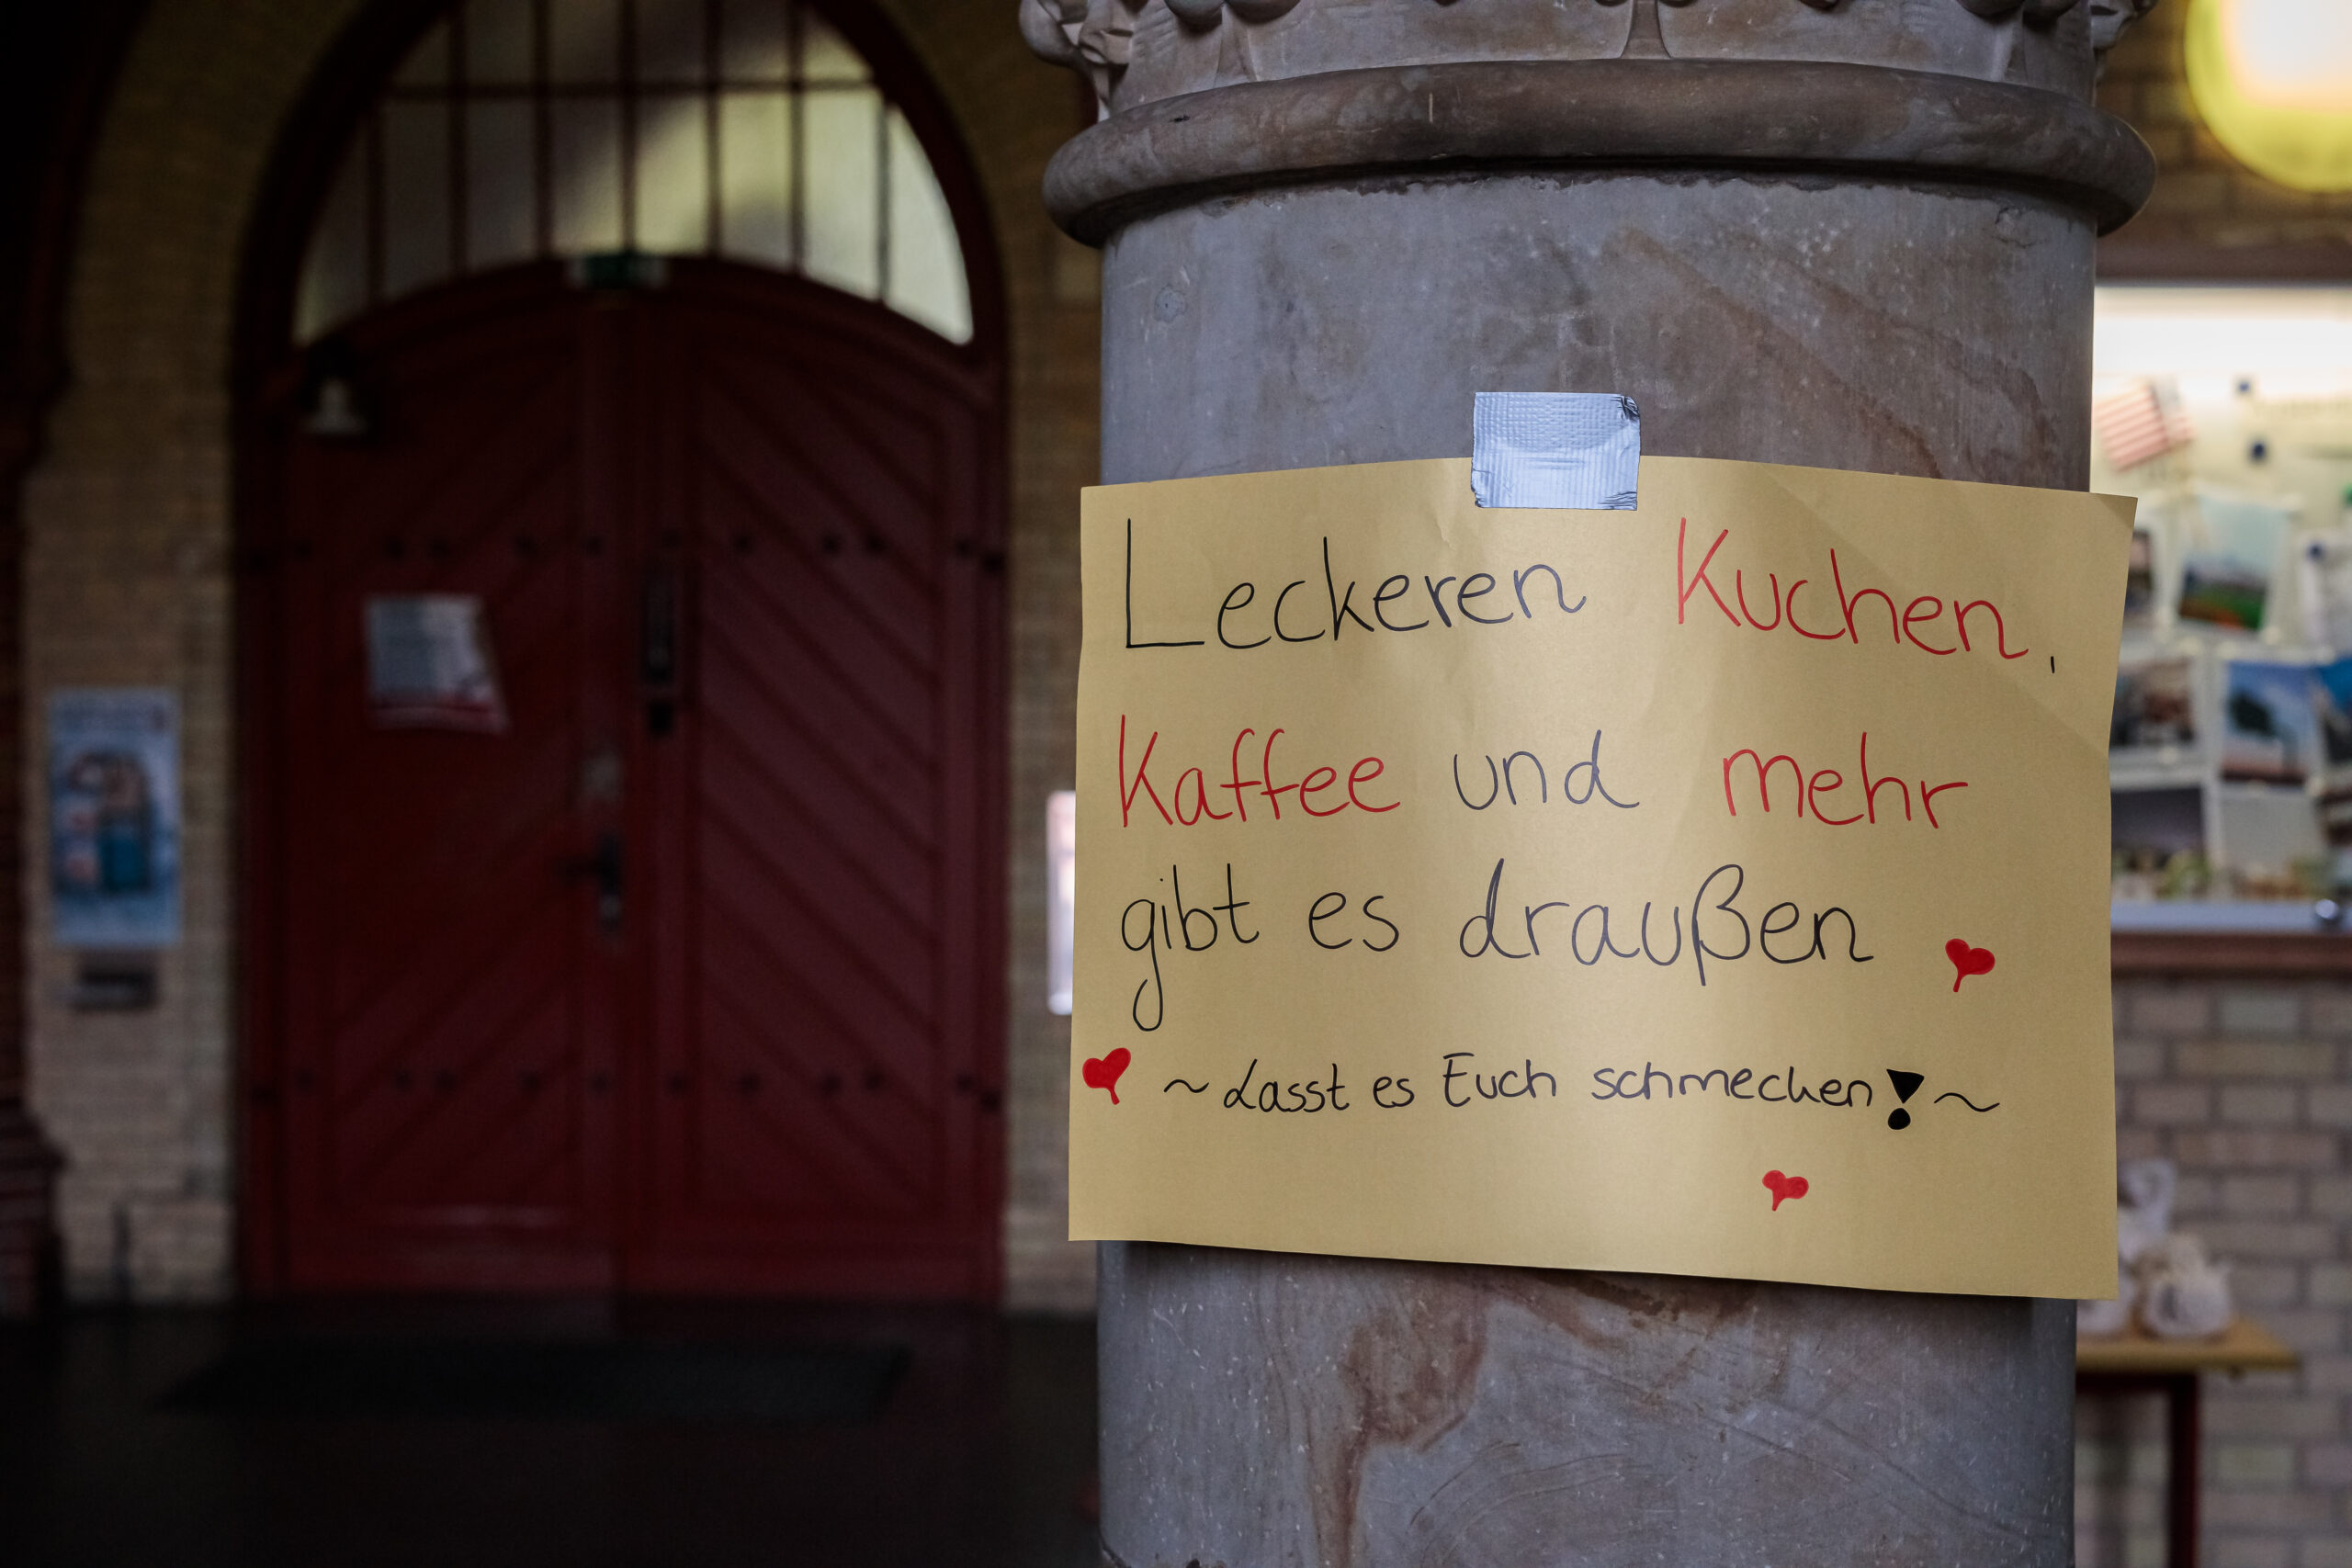 Leckeren Kuchen,
Kaffee und mehr
gibt es draußen
~ Lasst es Euch schmecken! ~